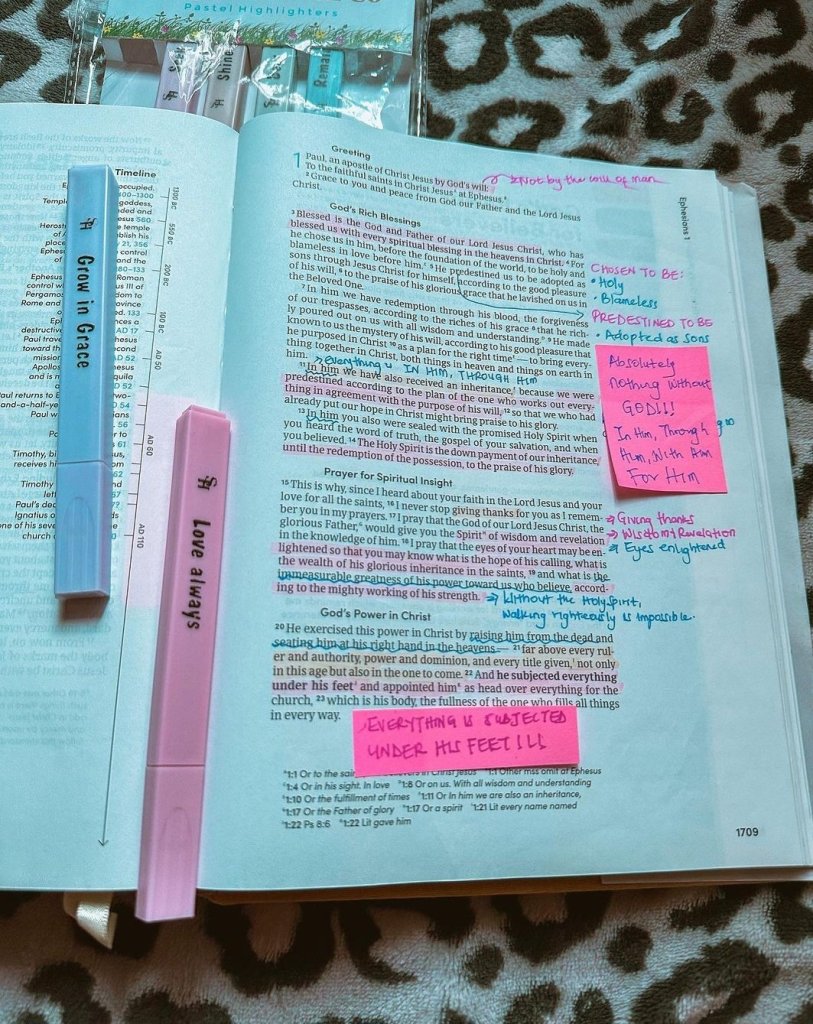 Pastel Highlighters
Shine
Remain
Timeline
Grow in Grace
Love always
1300 BC
550 BC
200 BC
100 BC
AD 50
AD 60
AD 110
Ephesians 1
Greeting
1 Paul, an apostle of Christ Jesus by God's will:
Not by the will of man
To the faithful saints in Christ Jesus at Ephesus.
2 Grace to you and peace from God our Father and the Lord Jesus
Christ.
God's Rich Blessings
3 Blessed is the God and Father of our Lord Jesus Christ, who has
blessed us with every spiritual blessing in the heavens in Christ. 4 For
he chose us in him, before the foundation of the world, to be holy and
blameless in love before him. 5 He predestined us to be adopted as
sons through Jesus Christ for himself, according to the good pleasure
of his will, 6 to the praise of his glorious grace that he lavished on us in
the Beloved One.
CHOSEN TO BE:
• Holy
• Blameless
PREDESTINED TO BE
• Adopted as sons
7 In him we have redemption through his blood, the forgiveness
of our trespasses, according to the riches of his grace 8 that he rich-
ly poured out on us with all wisdom and understanding. 9 He made
known to us the mystery of his will, according to his good pleasure that
he purposed in Christ 10 as a plan for the right time — to bring every-
thing together in Christ, both things in heaven and things on earth in
him.
Everything IN HIM, THROUGH HIM
11 In him we have also received an inheritance, because we were
predestined according to the plan of the one who works out every-
thing in agreement with the purpose of his will, 12 so that we who had
already put our hope in Christ might bring praise to his glory.
13 In him you also were sealed with the promised Holy Spirit when
you heard the word of truth, the gospel of your salvation, and when
you believed. 14 The Holy Spirit is the down payment of our inheritance,
until the redemption of the possession, to the praise of his glory.
Absolutely
nothing without
GOD!!!
In Him, Through
Him, With Him
For Him
Prayer for Spiritual Insight
15 This is why, since I heard about your faith in the Lord Jesus and your
love for all the saints, 16 I never stop giving thanks for you as I remem-
ber you in my prayers. 17 I pray that the God of our Lord Jesus Christ, the
glorious Father, would give you the Spirit of wisdom and revelation
in the knowledge of him. 18 I pray that the eyes of your heart may be en-
lightened so that you may know what is the hope of his calling, what is
the wealth of his glorious inheritance in the saints, 19 and what is the
immeasurable greatness of his power toward us who believe, accord-
ing to the mighty working of his strength.
→ Giving thanks
→ Wisdom & Revelation
→ Eyes enlightened
→ Without the Holy Spirit,
walking righteously is impossible.
God's Power in Christ
20 He exercised this power in Christ by raising him from the dead and
seating him at his right hand in the heavens — 21 far above every rul-
er and authority, power and dominion, and every title given, not only
in this age but also in the one to come. 22 And he subjected everything
under his feet and appointed him as head over everything for the
church, 23 which is his body, the fullness of the one who fills all things
in every way.
EVERYTHING IS SUBJECTED
UNDER HIS FEET!!!
1:1 Or to the sai 1:1 Other mss omit at Ephesus
1:4 Or in his sight. In love 1:8 Or on us. With all wisdom and understanding
1:10 Or the fulfillment of times 1:11 Or In him we are also an inheritance,
1:17 Or the Father of glory 1:17 Or a spirit 1:21 Lit every name named
1:22 Ps 8:6 1:22 Lit gave him
1709